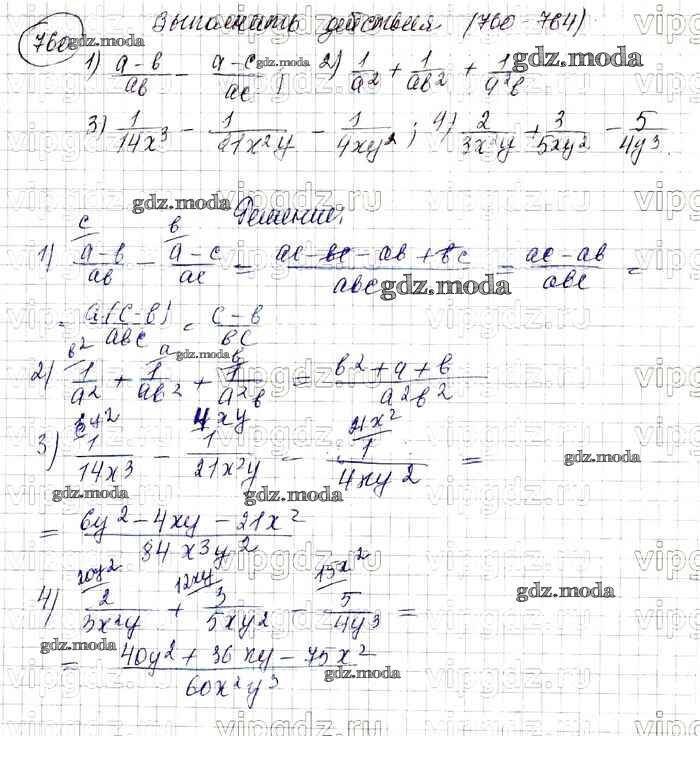 760
Выполнить действия (760-764)
1) (a-b)/ab - (a-c)/ac; 2) 1/a² + 1/ab² + 1/a²b
3) 1/14x³ - 1/21x²y - 1/4xy²; 4) 2/3x²y + 3/5xy² - 5/4y³.
Решение:
1) (a-b)/ab - (a-c)/ac = (ac-bc-ab+bc)/abc = (ac-ab)/abc =
= a(c-b)/abc = (c-b)/bc
2) 1/a² + 1/ab² + 1/a²b = (b²+a+b)/a²b²
3) 1/14x³ - 1/21x²y - 1/4xy² =
= (6y²-4xy-21x²)/84x³y²
4) 2/3x²y + 3/5xy² - 5/4y³ =
= (40y²+36xy-75x²)/60x²y³
gdz.moda
vipgdz.ru